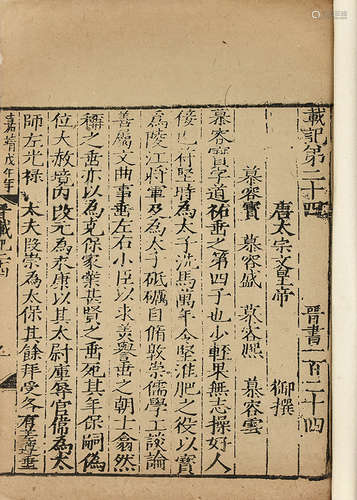 載記第二十四 晉書一百二十四
唐太宗文皇帝 御撰
慕容寶 慕容盛 慕容熙 慕容雲
慕容寶字道祐垂之第四子也少輕果無志操好人
佞己苻堅時為太子洗馬萬年令堅淮肥之役以寶
為陵江將軍及為太子砥礪自脩敦崇儒學工談論
善屬文曲事垂左右小臣以求美譽垂之朝士翕然
稱之垂亦以為克保家業甚賢之垂死其年保嗣偽
位大赦境內改元為永康以其太尉庫辱官偉為太
師左光祿大夫段崇為太保其餘拜受各有差遵垂
嘉靖戊午年